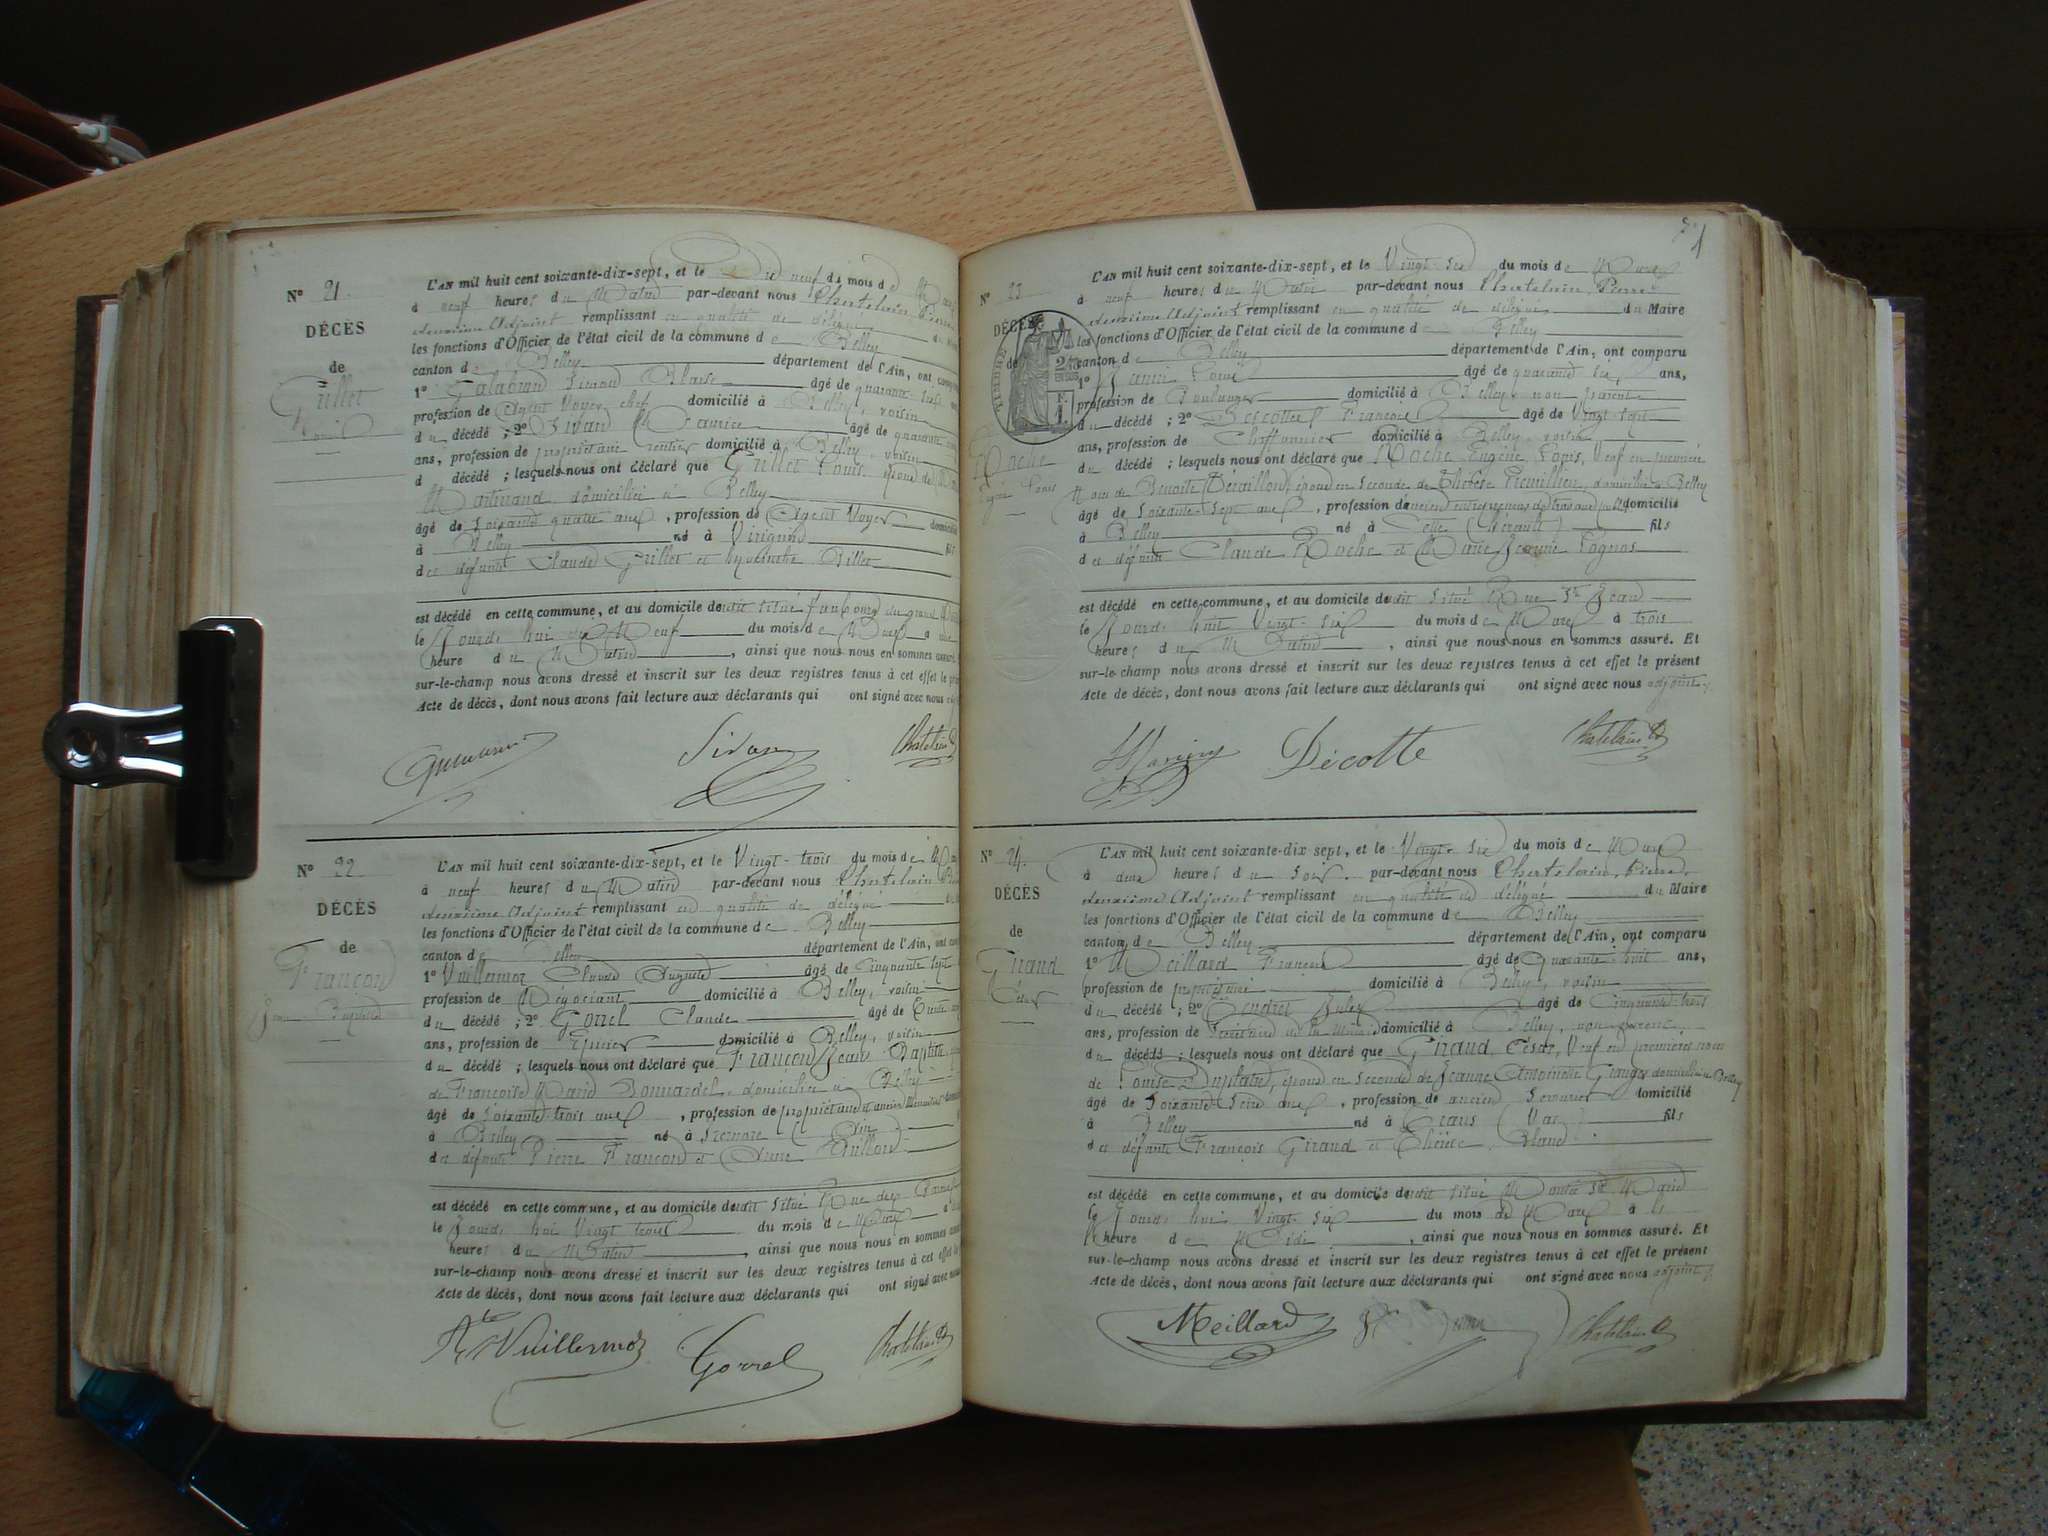 N° 21.
DÉCÈS
de
Grillet
Louis
L'AN mil huit cent soixante-dix-sept, et le Dix neuf du mois de
à neuf heures du Matin par-devant nous Chatelain Pierre
deuxième Adjoint remplissant en qualité de délégué
les fonctions d'Officier de l'état civil de la commune de Belley
canton de Belley département de l'Ain, ont
1° Blaise âgé de quarante
profession de Agent Voyer chef domicilié à Belley, voisin
du décédé ; 2° Sivan Maurice âgé de quarante
ans, profession de propriétaire rentier domicilié à Belley, voisin
d décédé ; lesquels nous ont déclaré que Grillet Louis, époux de
Martinand domicilié à Belley
âgé de soixante quatre ans, profession de Agent Voyer domicilié
à Belley né à Virignin fils
des défunts Claude Grillet et Billet
est décédé en cette commune, et au domicile dudit situé faubourg du grand
le jourd'hui dix Neuf du mois de Mars à une
heure du Matin, ainsi que nous nous en sommes assuré.
sur-le-champ nous avons dressé et inscrit sur les deux registres tenus à cet effet le
Acte de décès, dont nous avons fait lecture aux déclarants qui ont signé avec nous
Sivan
Chatelain
N° 22.
DÉCÈS
de
Françon
Jean Baptiste
L'AN mil huit cent soixante-dix-sept, et le Vingt-trois du mois de Mars
à neuf heures du Matin par-devant nous Chatelain
deuxième Adjoint remplissant en qualité de délégué
les fonctions d'Officier de l'état civil de la commune de Belley
canton de Belley département de l'Ain, ont
1° Vuillermoz Claude Auguste âgé de Cinquante sept
profession de Négociant domicilié à Belley, voisin
du décédé ; 2° Gorrel Claude âgé de
ans, profession de Epicier domicilié à Belley, voisin
du décédé ; lesquels nous ont déclaré que Françon Jean Baptiste,
de Françoise Marie Bonnardel, domicilié à Belley
âgé de soixante-trois ans, profession de propriétaire et ancien
à Belley né à (Ain)
des défunts Pierre Françon et Anne
est décédé en cette commune, et au domicile dudit situé Rue des
le jourd'hui Vingt trois du mois de Mars à
heures du Matin, ainsi que nous nous en sommes
sur-le-champ nous avons dressé et inscrit sur les deux registres tenus à cet effet le
Acte de décès, dont nous avons fait lecture aux déclarants qui ont signé avec nous
Vuillermoz
Gorrel
Chatelain
1
N° 23
DÉCÈS
de
Roche
Eugène Louis
TIMBRE
L'AN mil huit cent soixante-dix-sept, et le Vingt-six du mois de Mars
à neuf heures du Matin par-devant nous Chatelain Pierre
deuxième Adjoint remplissant en qualité de délégué du Maire
les fonctions d'Officier de l'état civil de la commune de Belley
canton de Belley département de l'Ain, ont comparu
1° Janin Louis âgé de quarante six ans,
profession de Boulanger domicilié à Belley, non parent
du décédé ; 2° François âgé de Vingt sept
ans, profession de Chiffonnier domicilié à Belley, voisin
du décédé ; lesquels nous ont déclaré que Roche Eugène Louis, Veuf en première
Noces de Benoite, époux en secondes de Thérèse, domicilié à Belley
âgé de soixante-sept ans, profession d'ancien entrepreneur de travaux publics domicilié
à Belley né à Cette (Hérault) fils
des défunts Claude Roche et Marie Jeanne
est décédé en cette commune, et au domicile dudit situé Rue St Jean
le jourd'hui Vingt-six du mois de Mars à trois
heures du Matin, ainsi que nous nous en sommes assuré. Et
sur-le-champ nous avons dressé et inscrit sur les deux registres tenus à cet effet le présent
Acte de décès, dont nous avons fait lecture aux déclarants qui ont signé avec nous adjoint.
Décotte
Chatelain
N° 24.
DÉCÈS
de
Giraud
César
L'AN mil huit cent soixante-dix sept, et le Vingt-six du mois de Mars
à deux heures du Soir. par-devant nous Chatelain, Pierre,
deuxième Adjoint remplissant en qualité de délégué du Maire
les fonctions d'Officier de l'état civil de la commune de Belley
canton de Belley département de l'Ain, ont comparu
1° Meillard François âgé de Quarante-huit ans,
profession de domicilié à Belley, voisin
du décédé ; 2° Gendret Jules âgé de Cinquante-trois
ans, profession de Secrétaire de la Mairie domicilié à Belley, non parent,
du décédé ; lesquels nous ont déclaré que Giraud, César, Veuf en premières noces
de Louise, époux en secondes de Jeanne Antoinette domicilié à Belley
âgé de soixante-seize ans, profession de ancien domicilié
à Belley né à (Var) fils
des défunts François Giraud et Thérèse Blanc
est décédé en cette commune, et au domicile dudit situé Montée Ste Marie
le jourd'hui Vingt-six du mois de Mars à
heure de Midi, ainsi que nous nous en sommes assuré. Et
sur-le-champ nous avons dressé et inscrit sur les deux registres tenus à cet effet le présent
Acte de décès, dont nous avons fait lecture aux déclarants qui ont signé avec nous adjoint.
Meillard
Chatelain